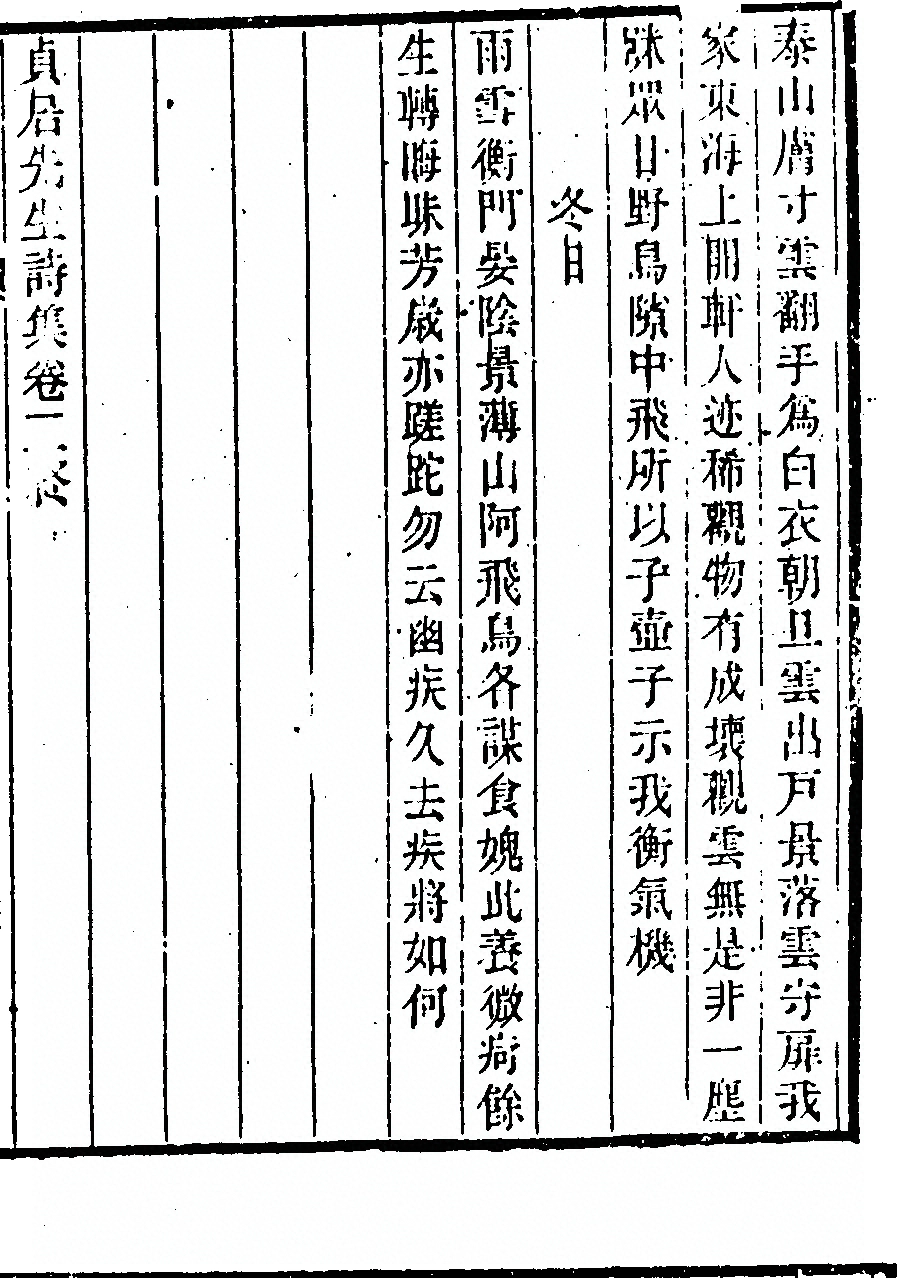 泰山膚寸雲翻手爲白衣朝旦雲出戸景落雲守扉我
家東海上開軒人迹稀觀物有成壞觀雲無是非一塵
眯眾目野鳥隙中飛所以子壺子示我衡氣機
冬日
雨雪衡門晏陰景薄山阿飛鳥各謀食媿此養微痾餘
生轉晦昧芳歲亦蹉跎勿云幽疾久去疾將如何
貞居先生詩集卷一終